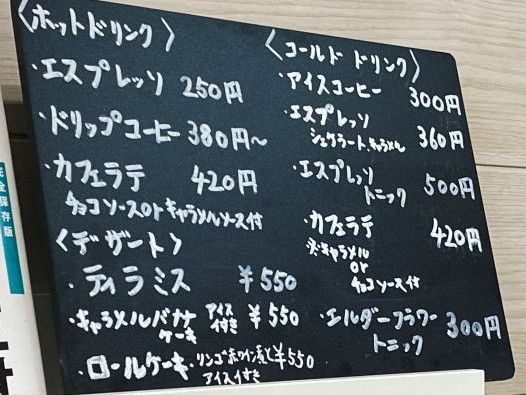 〈ホットドリンク〉
・エスプレッソ 250円
・ドリップコーヒー 380円～
・カフェラテ 420円
チョコソースorキャラメルソース付
〈デザート〉
・ティラミス ¥550
・キャラメルバナナケーキ アイス付き ¥550
・ロールケーキ・リンゴ赤ワイン煮と アイス付き ¥550
〈コールドドリンク〉
・アイスコーヒー 300円
・エスプレッソ
シェケラートキャラメル 360円
・エスプレッソ
トニック 500円
・カフェラテ 420円
※キャラメル
or
チョコソース付
・エルダーフラワー
トニック 300円
完全保存版